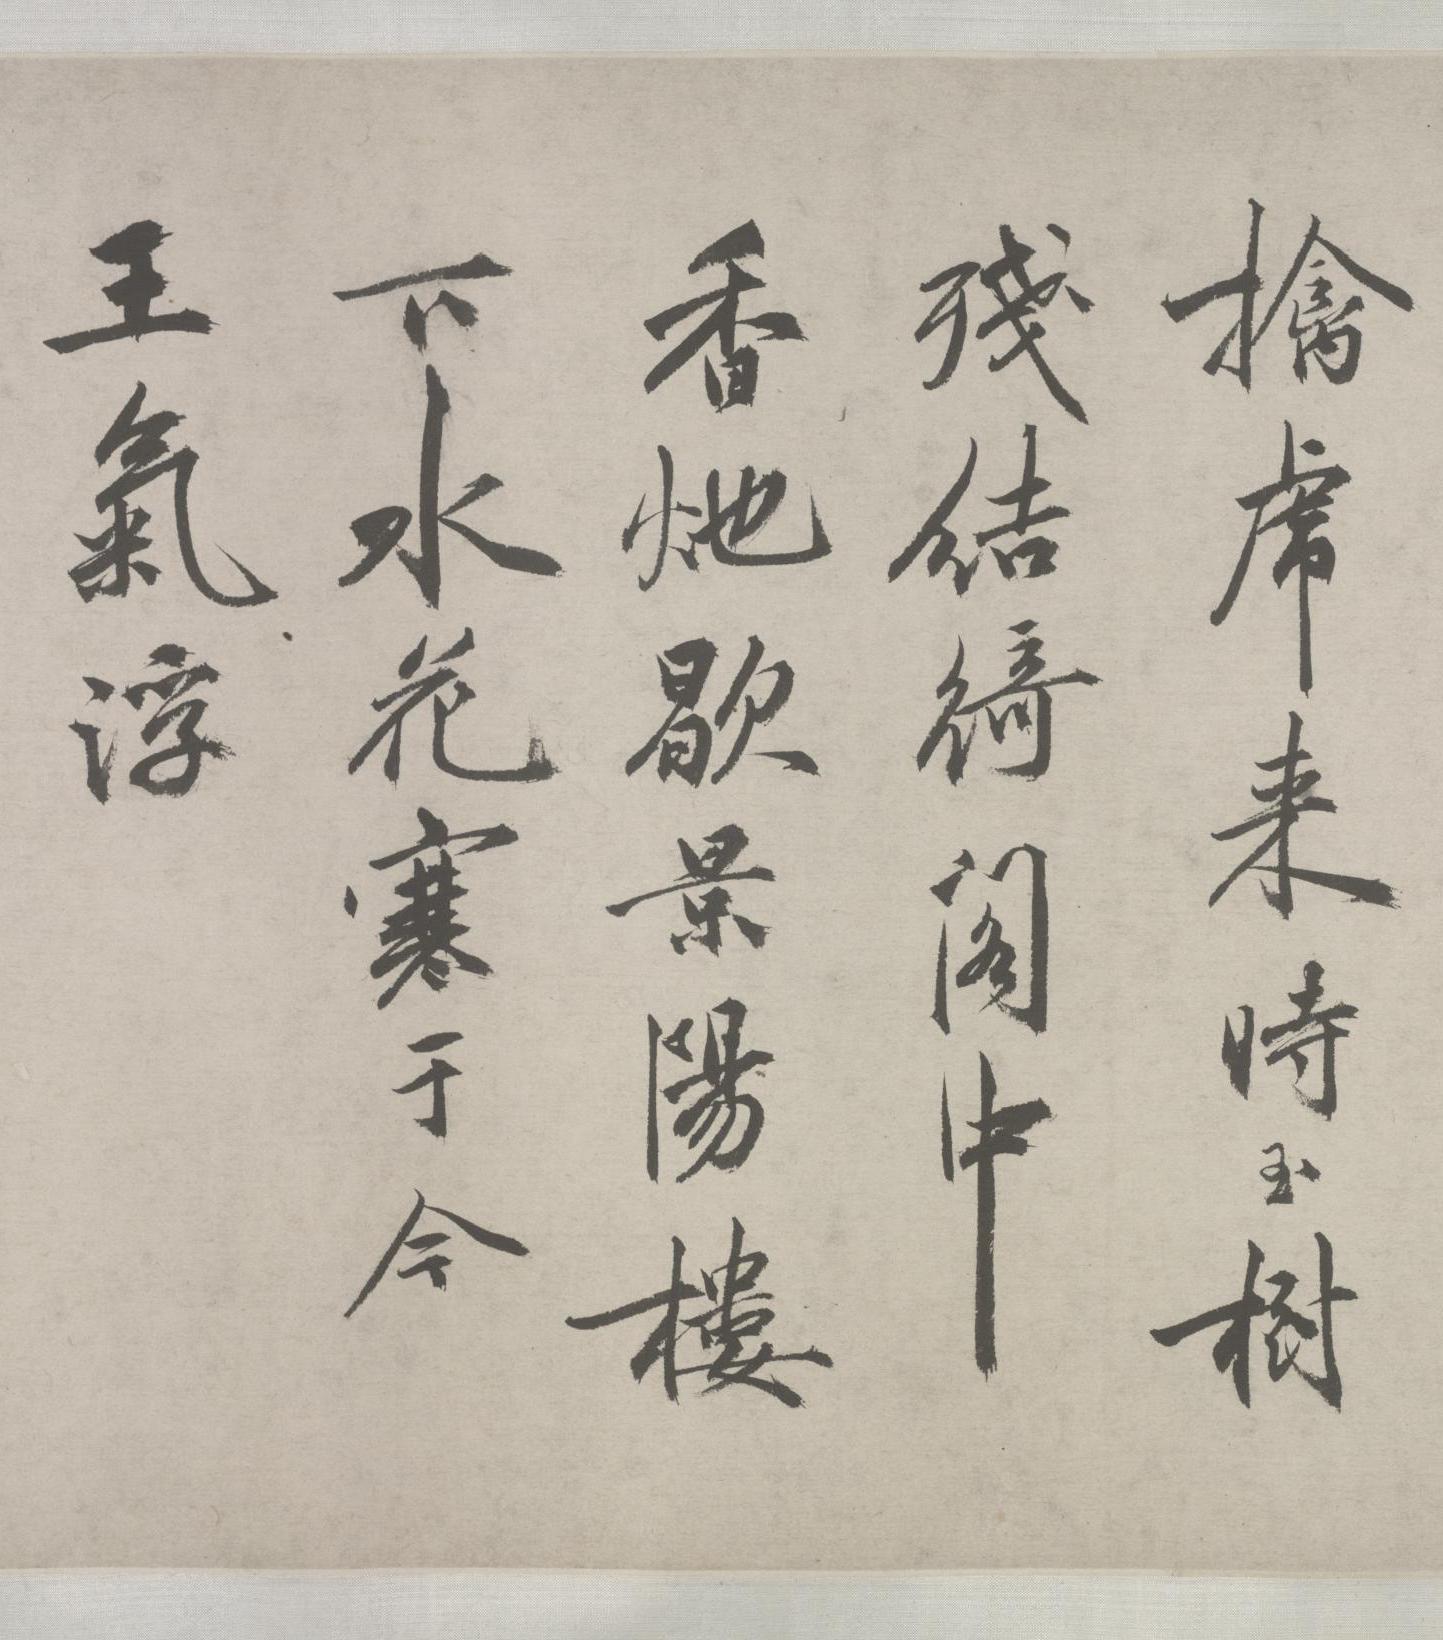 擒虎来時玉樹
殘結綺閣中
香灺歇景陽樓
下水花寒于今
王氣浮